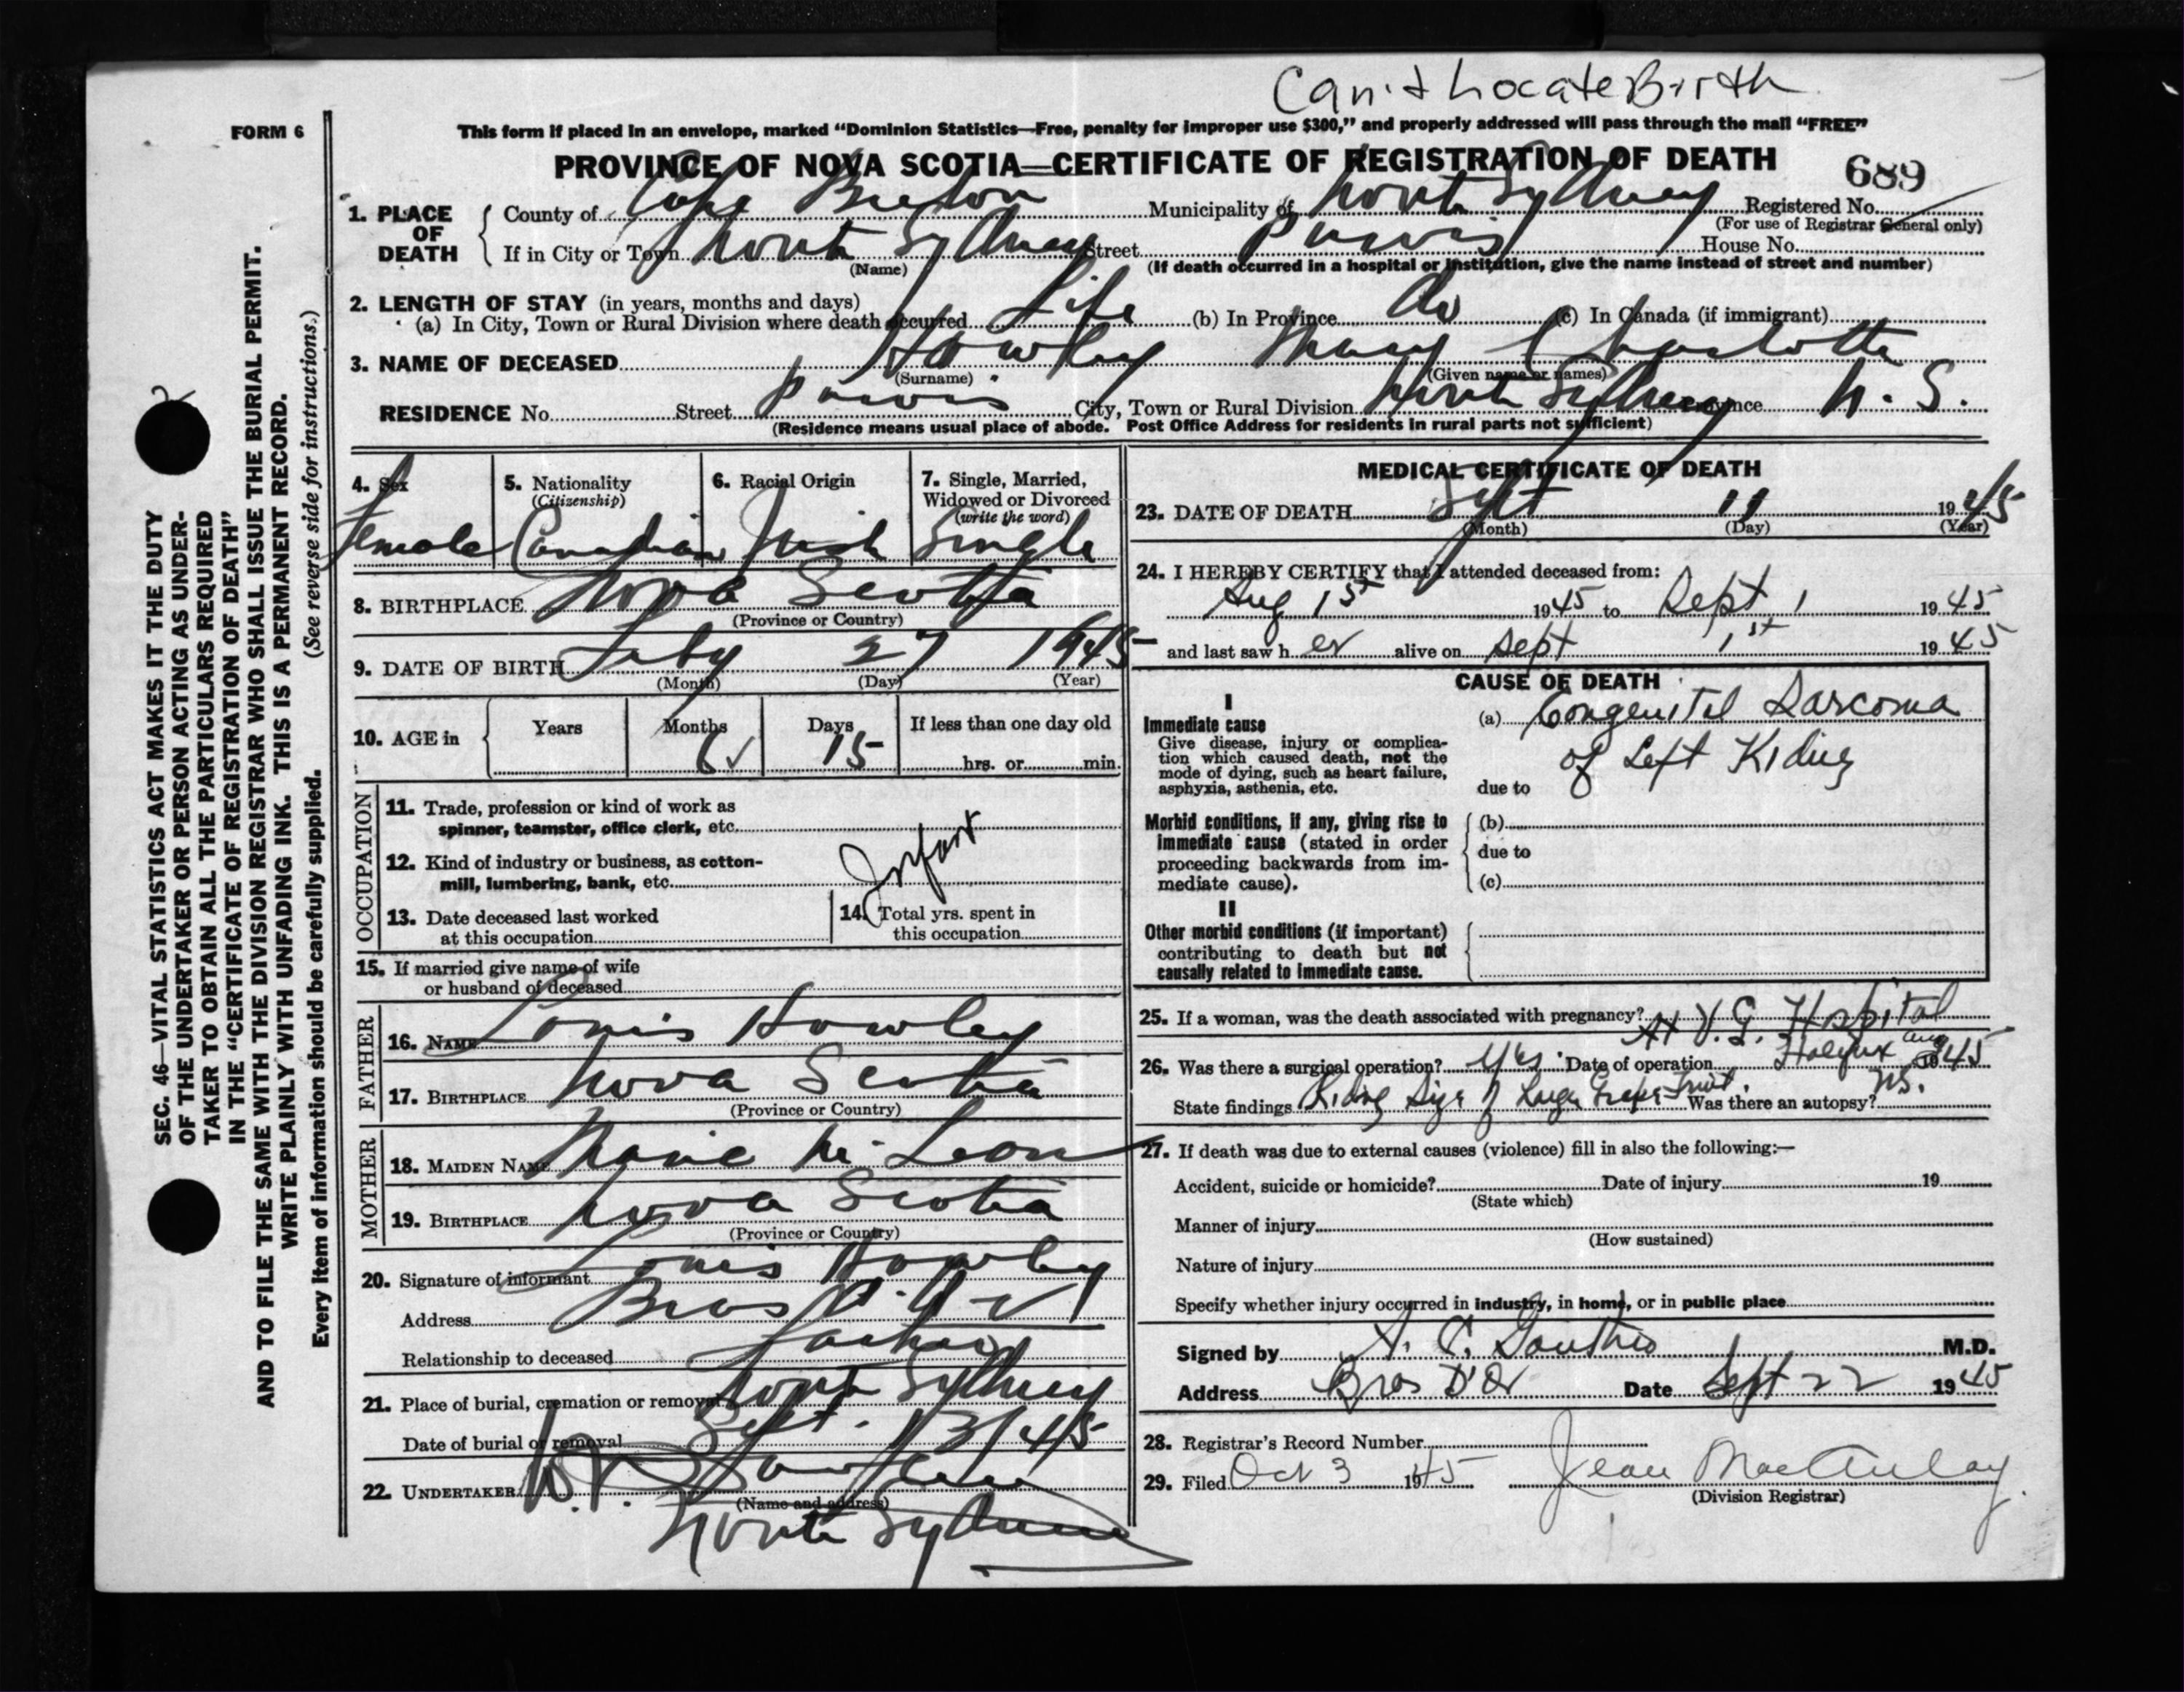 Can't Locate Birth
FORM 6
This form if placed in an envelope, marked "Dominion Statistics—Free, penalty for improper use $300," and properly addressed will pass through the mail "FREE"
PROVINCE OF NOVA SCOTIA—CERTIFICATE OF REGISTRATION OF DEATH
689
1. PLACE OF DEATH
County of Cape Breton Municipality of North Sydney Registered No.
(For use of Registrar General only)
If in City or Town North Sydney Street Purvis House No.
(Name) (If death occurred in a hospital or institution, give the name instead of street and number)
2. LENGTH OF STAY (in years, months and days)
(a) In City, Town or Rural Division where death occurred Life (b) In Province do (c) In Canada (if immigrant)
3. NAME OF DECEASED Howley Mary Charlotte
(Surname) (Given name or names)
RESIDENCE No. Street Purvis City, Town or Rural Division North Sydney Province N. S.
(Residence means usual place of abode. Post Office Address for residents in rural parts not sufficient)
4. Sex 5. Nationality (Citizenship) 6. Racial Origin 7. Single, Married, Widowed or Divorced (write the word)
Female Canadian Irish Single
8. BIRTHPLACE Nova Scotia
(Province or Country)
9. DATE OF BIRTH Feby 27 1945
(Month) (Day) (Year)
10. AGE in Years Months Days If less than one day old
6 ✓ 15 hrs. or min.
OCCUPATION
11. Trade, profession or kind of work as
spinner, teamster, office clerk, etc.
12. Kind of industry or business, as cotton-
mill, lumbering, bank, etc.
Infant
13. Date deceased last worked
at this occupation
14. Total yrs. spent in
this occupation
15. If married give name of wife
or husband of deceased
FATHER
16. NAME Louis Howley
17. BIRTHPLACE Nova Scotia
(Province or Country)
MOTHER
18. MAIDEN NAME Marie McLean
19. BIRTHPLACE Nova Scotia
(Province or Country)
20. Signature of informant Louis Howley
Address Bras
Relationship to deceased Father
21. Place of burial, cremation or removal North Sydney
Date of burial or removal Sept. 13/45
22. UNDERTAKER
(Name and address)
North Sydney
MEDICAL CERTIFICATE OF DEATH
23. DATE OF DEATH Sept 11 1945
(Month) (Day) (Year)
24. I HEREBY CERTIFY that I attended deceased from:
Aug 1st 1945 to Sept 1 1945
and last saw h er alive on Sept 1st 1945
CAUSE OF DEATH
I
Immediate cause
Give disease, injury or complica-
tion which caused death, not the
mode of dying, such as heart failure,
asphyxia, asthenia, etc.
(a) Congenital Sarcoma
of Left Kidney
due to
Morbid conditions, if any, giving rise to
immediate cause (stated in order
proceeding backwards from im-
mediate cause).
(b)
due to
(c)
II
Other morbid conditions (if important)
contributing to death but not
causally related to immediate cause.
25. If a woman, was the death associated with pregnancy?
At V. G. Hospital
26. Was there a surgical operation? Yes Date of operation Halifax Aug 1945
State findings Kidney Size of Large Grape Fruit. Was there an autopsy? No.
27. If death was due to external causes (violence) fill in also the following:—
Accident, suicide or homicide? Date of injury 19
(State which)
Manner of injury
(How sustained)
Nature of injury
Specify whether injury occurred in industry, in home, or in public place
Signed by A. C. M.D.
Address Bras D'Or Date Sept 22 1945
28. Registrar's Record Number
29. Filed Oct 3 1945 Jean MacAulay
(Division Registrar)
SEC. 46—VITAL STATISTICS ACT MAKES IT THE DUTY
OF THE UNDERTAKER OR PERSON ACTING AS UNDER-
TAKER TO OBTAIN ALL THE PARTICULARS REQUIRED
IN THE "CERTIFICATE OF REGISTRATION OF DEATH"
AND TO FILE THE SAME WITH THE DIVISION REGISTRAR WHO SHALL ISSUE THE BURIAL PERMIT.
WRITE PLAINLY WITH UNFADING INK. THIS IS A PERMANENT RECORD.
(See reverse side for instructions.)
Every item of information should be carefully supplied.